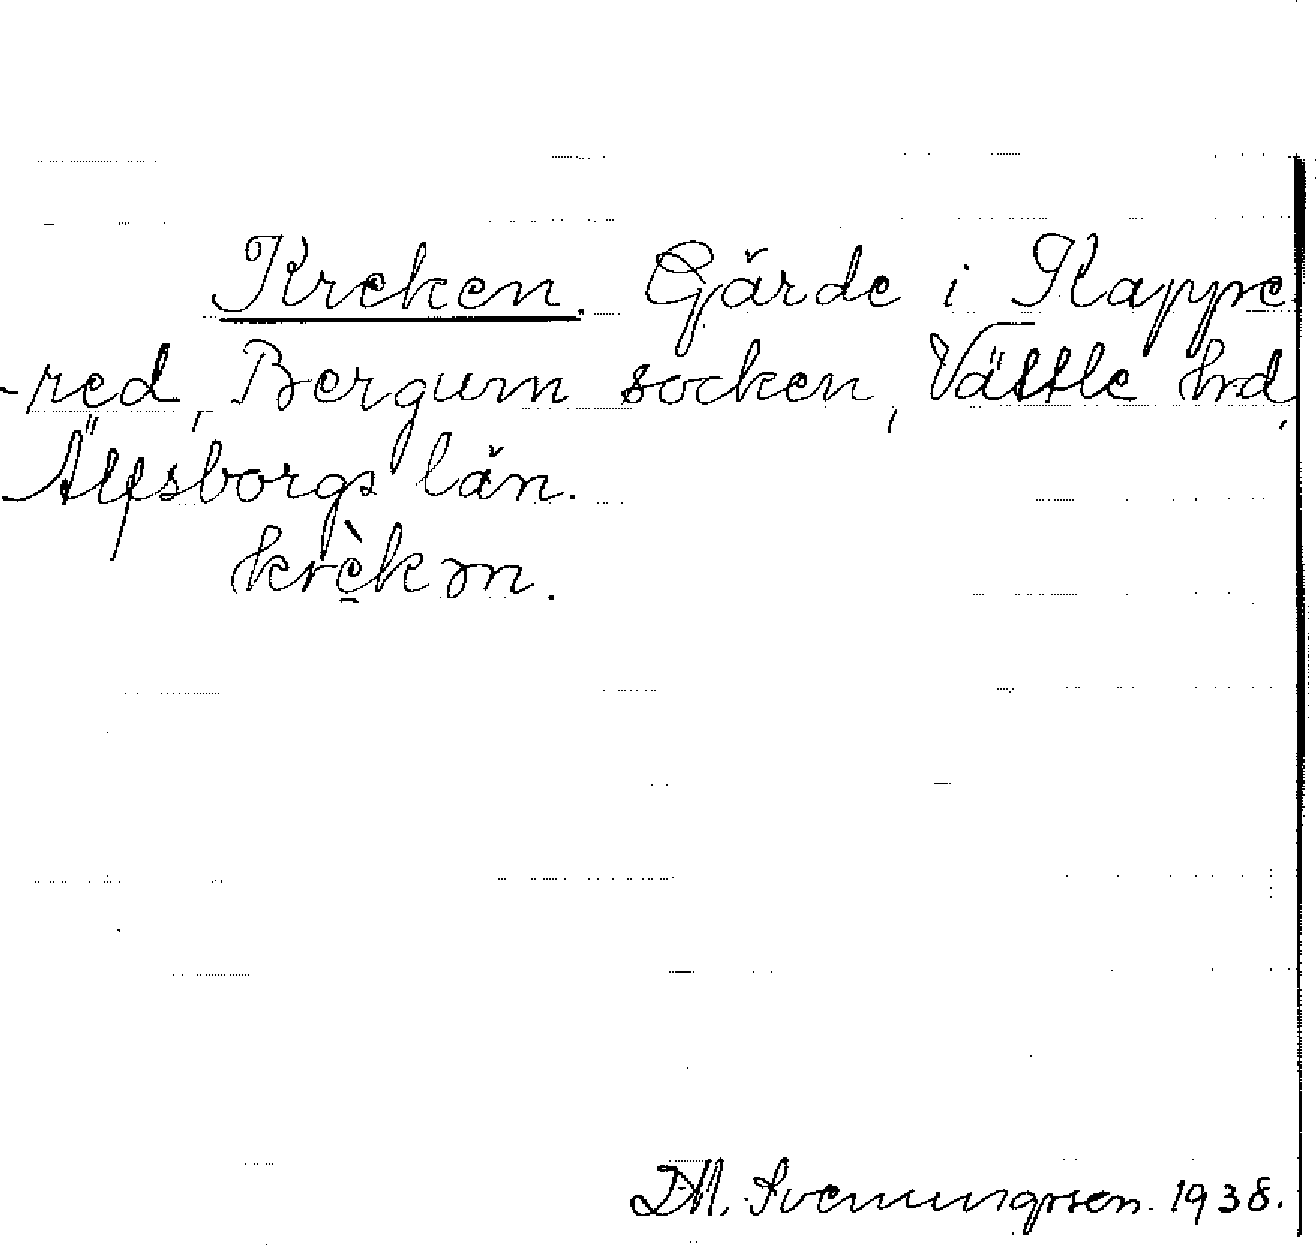 Kreken. Gärde i Kappe
-red, Bergum socken, Vättle hrd,
Älfsborgs län.
krèkən.
D.M. Svenungsson. 1938.